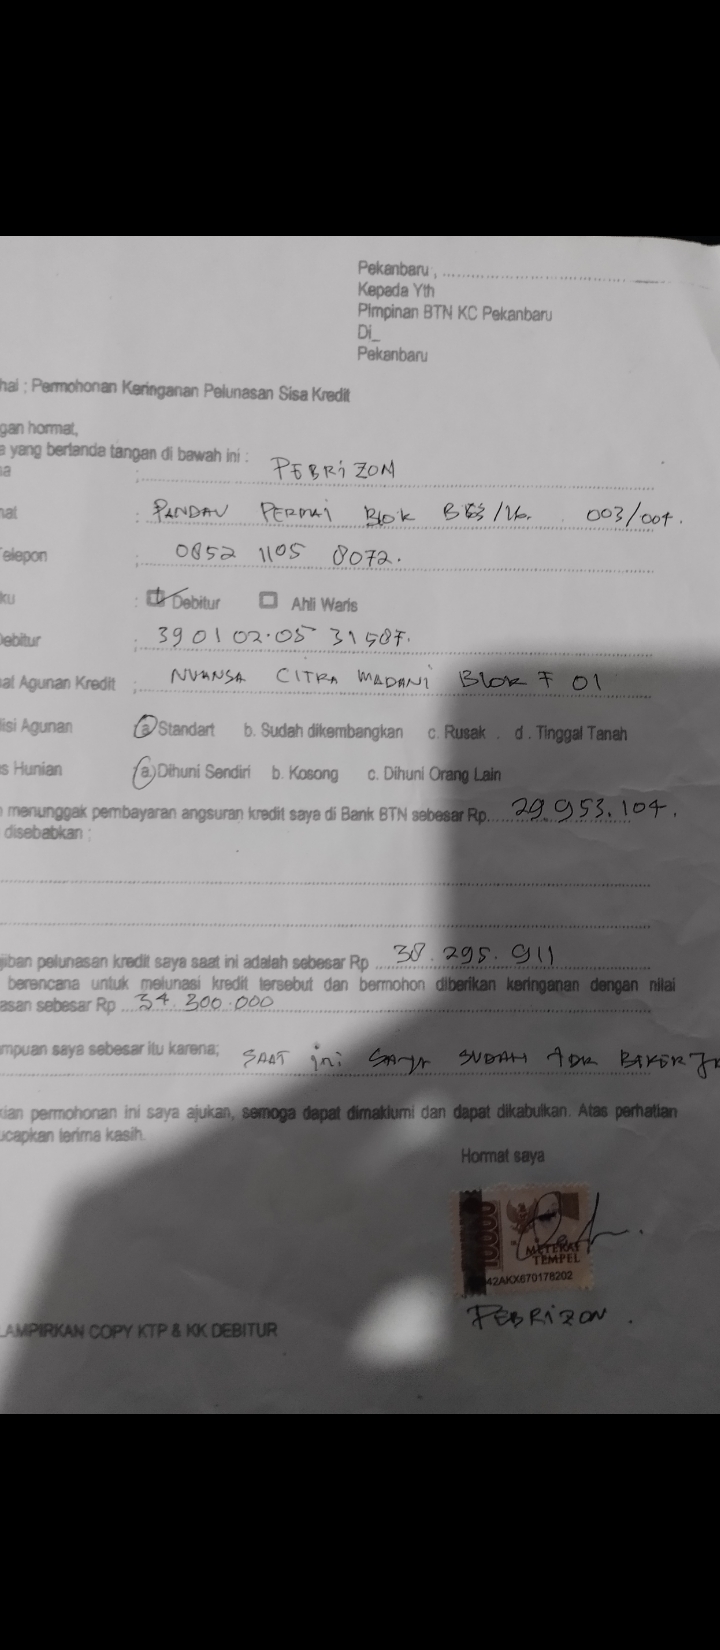 Pekanbaru , ................
Kepada Yth
Pimpinan BTN KC Pekanbaru
Di_
Pekanbaru
hal : Permohonan Keringanan Pelunasan Sisa Kredit
gan hormat,
a yang bertanda tangan di bawah ini :
a : PEBRiZON
mat : PANDAU PERMAI Blok /16. 003/004.
elepon : 0852 1105 8072.
ku : Debitur Ahli Waris
Debitur : 390102.05 31587.
at Agunan Kredit : NUANSA CITRA MADANi Blok F 01
isi Agunan : a Standart b. Sudah dikembangkan c. Rusak . d . Tinggal Tanah
s Hunian : (a.) Dihuni Sendiri b. Kosong c. Dihuni Orang Lain
menunggak pembayaran angsuran kredit saya di Bank BTN sebesar Rp. 29.953.104.
disebabkan :
jiban pelunasan kredit saya saat ini adalah sebesar Rp 38.295.911
berencana untuk melunasi kredit tersebut dan bermohon diberikan keringanan dengan nilai
asan sebesar Rp 34.300.000
mpuan saya sebesar itu karena; SAAT ini SAYA SUDAH
ian permohonan ini saya ajukan, semoga dapat dimaklumi dan dapat dikabulkan. Atas perhatian
ucapkan terima kasih.
Hormat saya
10000
METERAI
TEMPEL
42AKX670178202
PEBRiZON .
LAMPIRKAN COPY KTP & KK DEBITUR